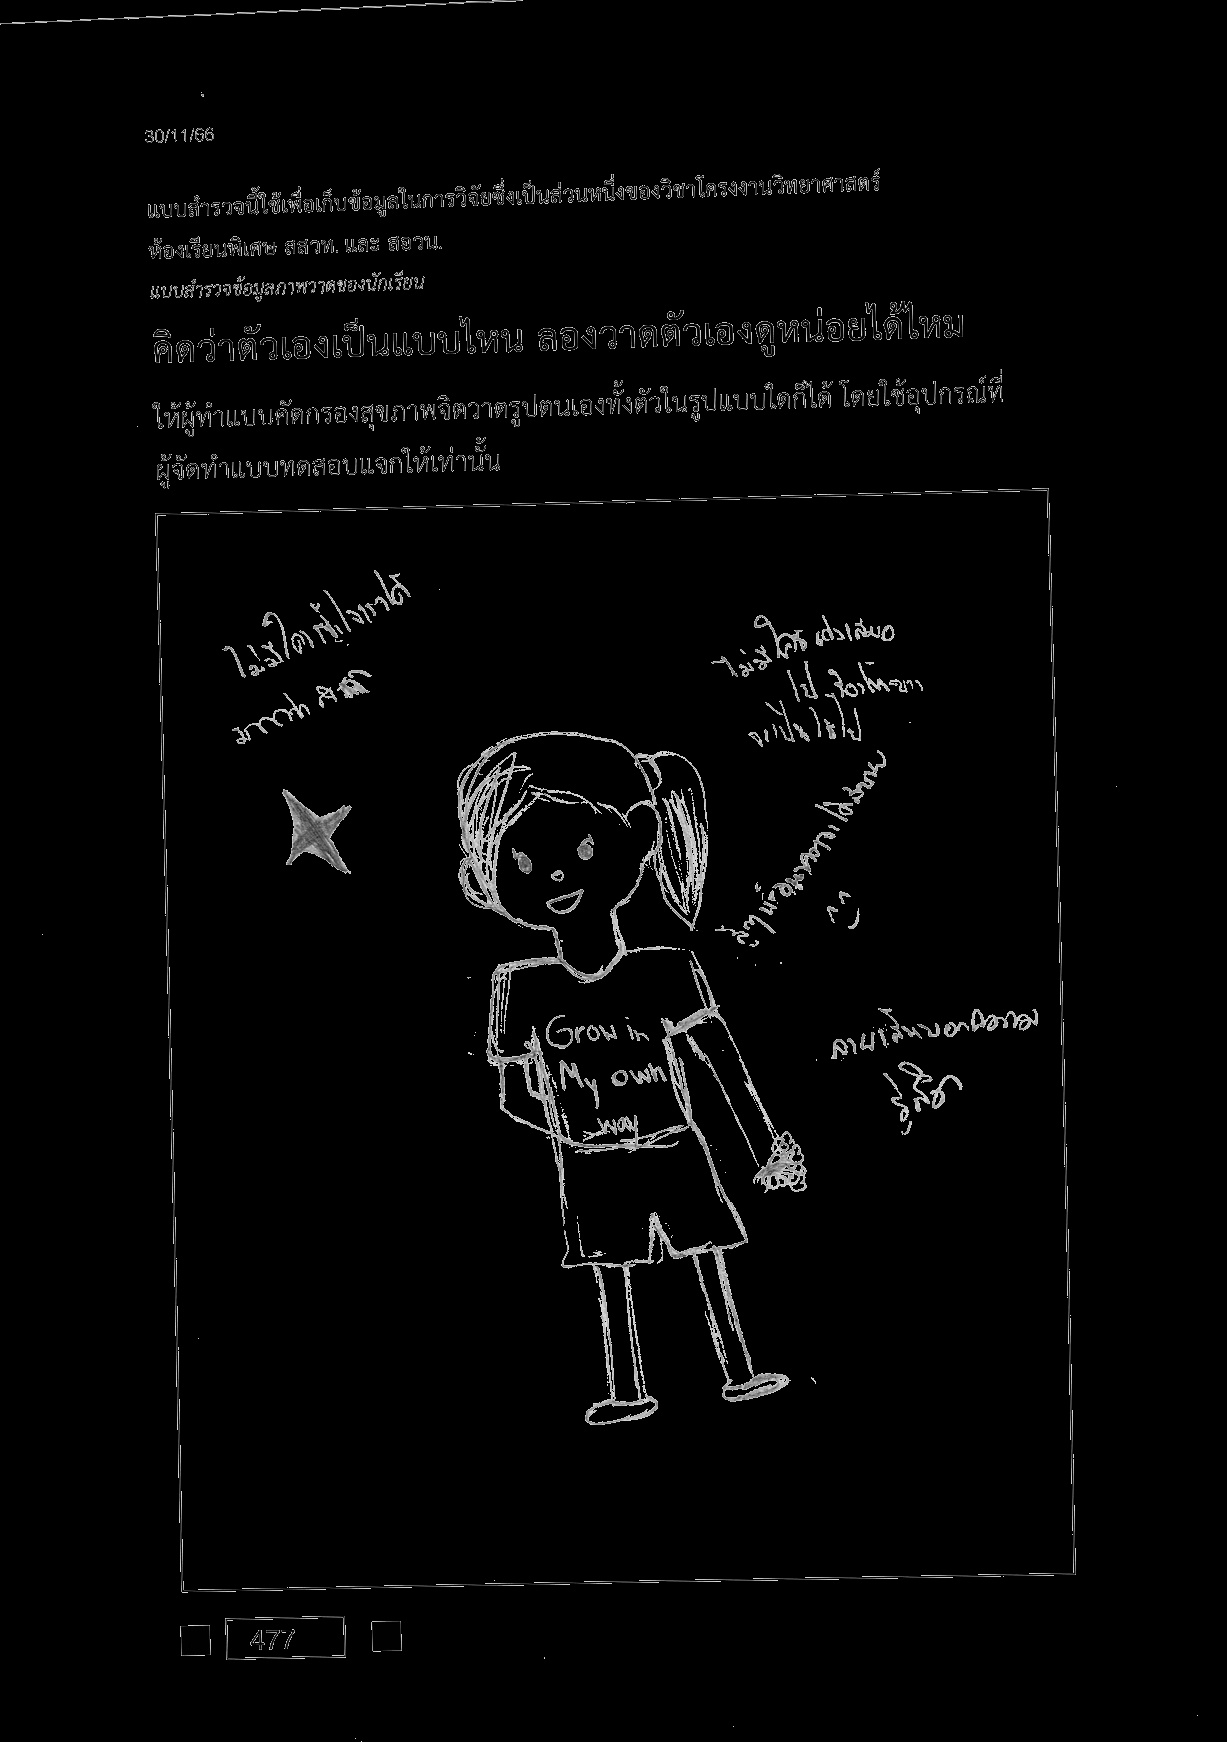 30/11/66
แบบสำรวจนี้ใช้เพื่อเก็บข้อมูลในการวิจัยซึ่งเป็นส่วนหนึ่งของวิชาโครงงานวิทยาศาสตร์
ห้องเรียนพิเศษ สสวท. และ สอวน.
แบบสำรวจข้อมูลภาพวาดของนักเรียน
คิดว่าตัวเองเป็นแบบไหน ลองวาดตัวเองดูหน่อยได้ไหม
ให้ผู้ทำแบบคัดกรองสุขภาพจิตวาดรูปตนเองทั้งตัวในรูปแบบใดก็ได้ โดยใช้อุปกรณ์ที่
ผู้จัดทำแบบทดสอบแจกให้เท่านั้น
ไม่มีใครเข้าใจเราได้
ไม่มีใคร
ไป
จะเป็น
Grow in
My own
way
ลายเส้นบอกความ
รู้สึก
477